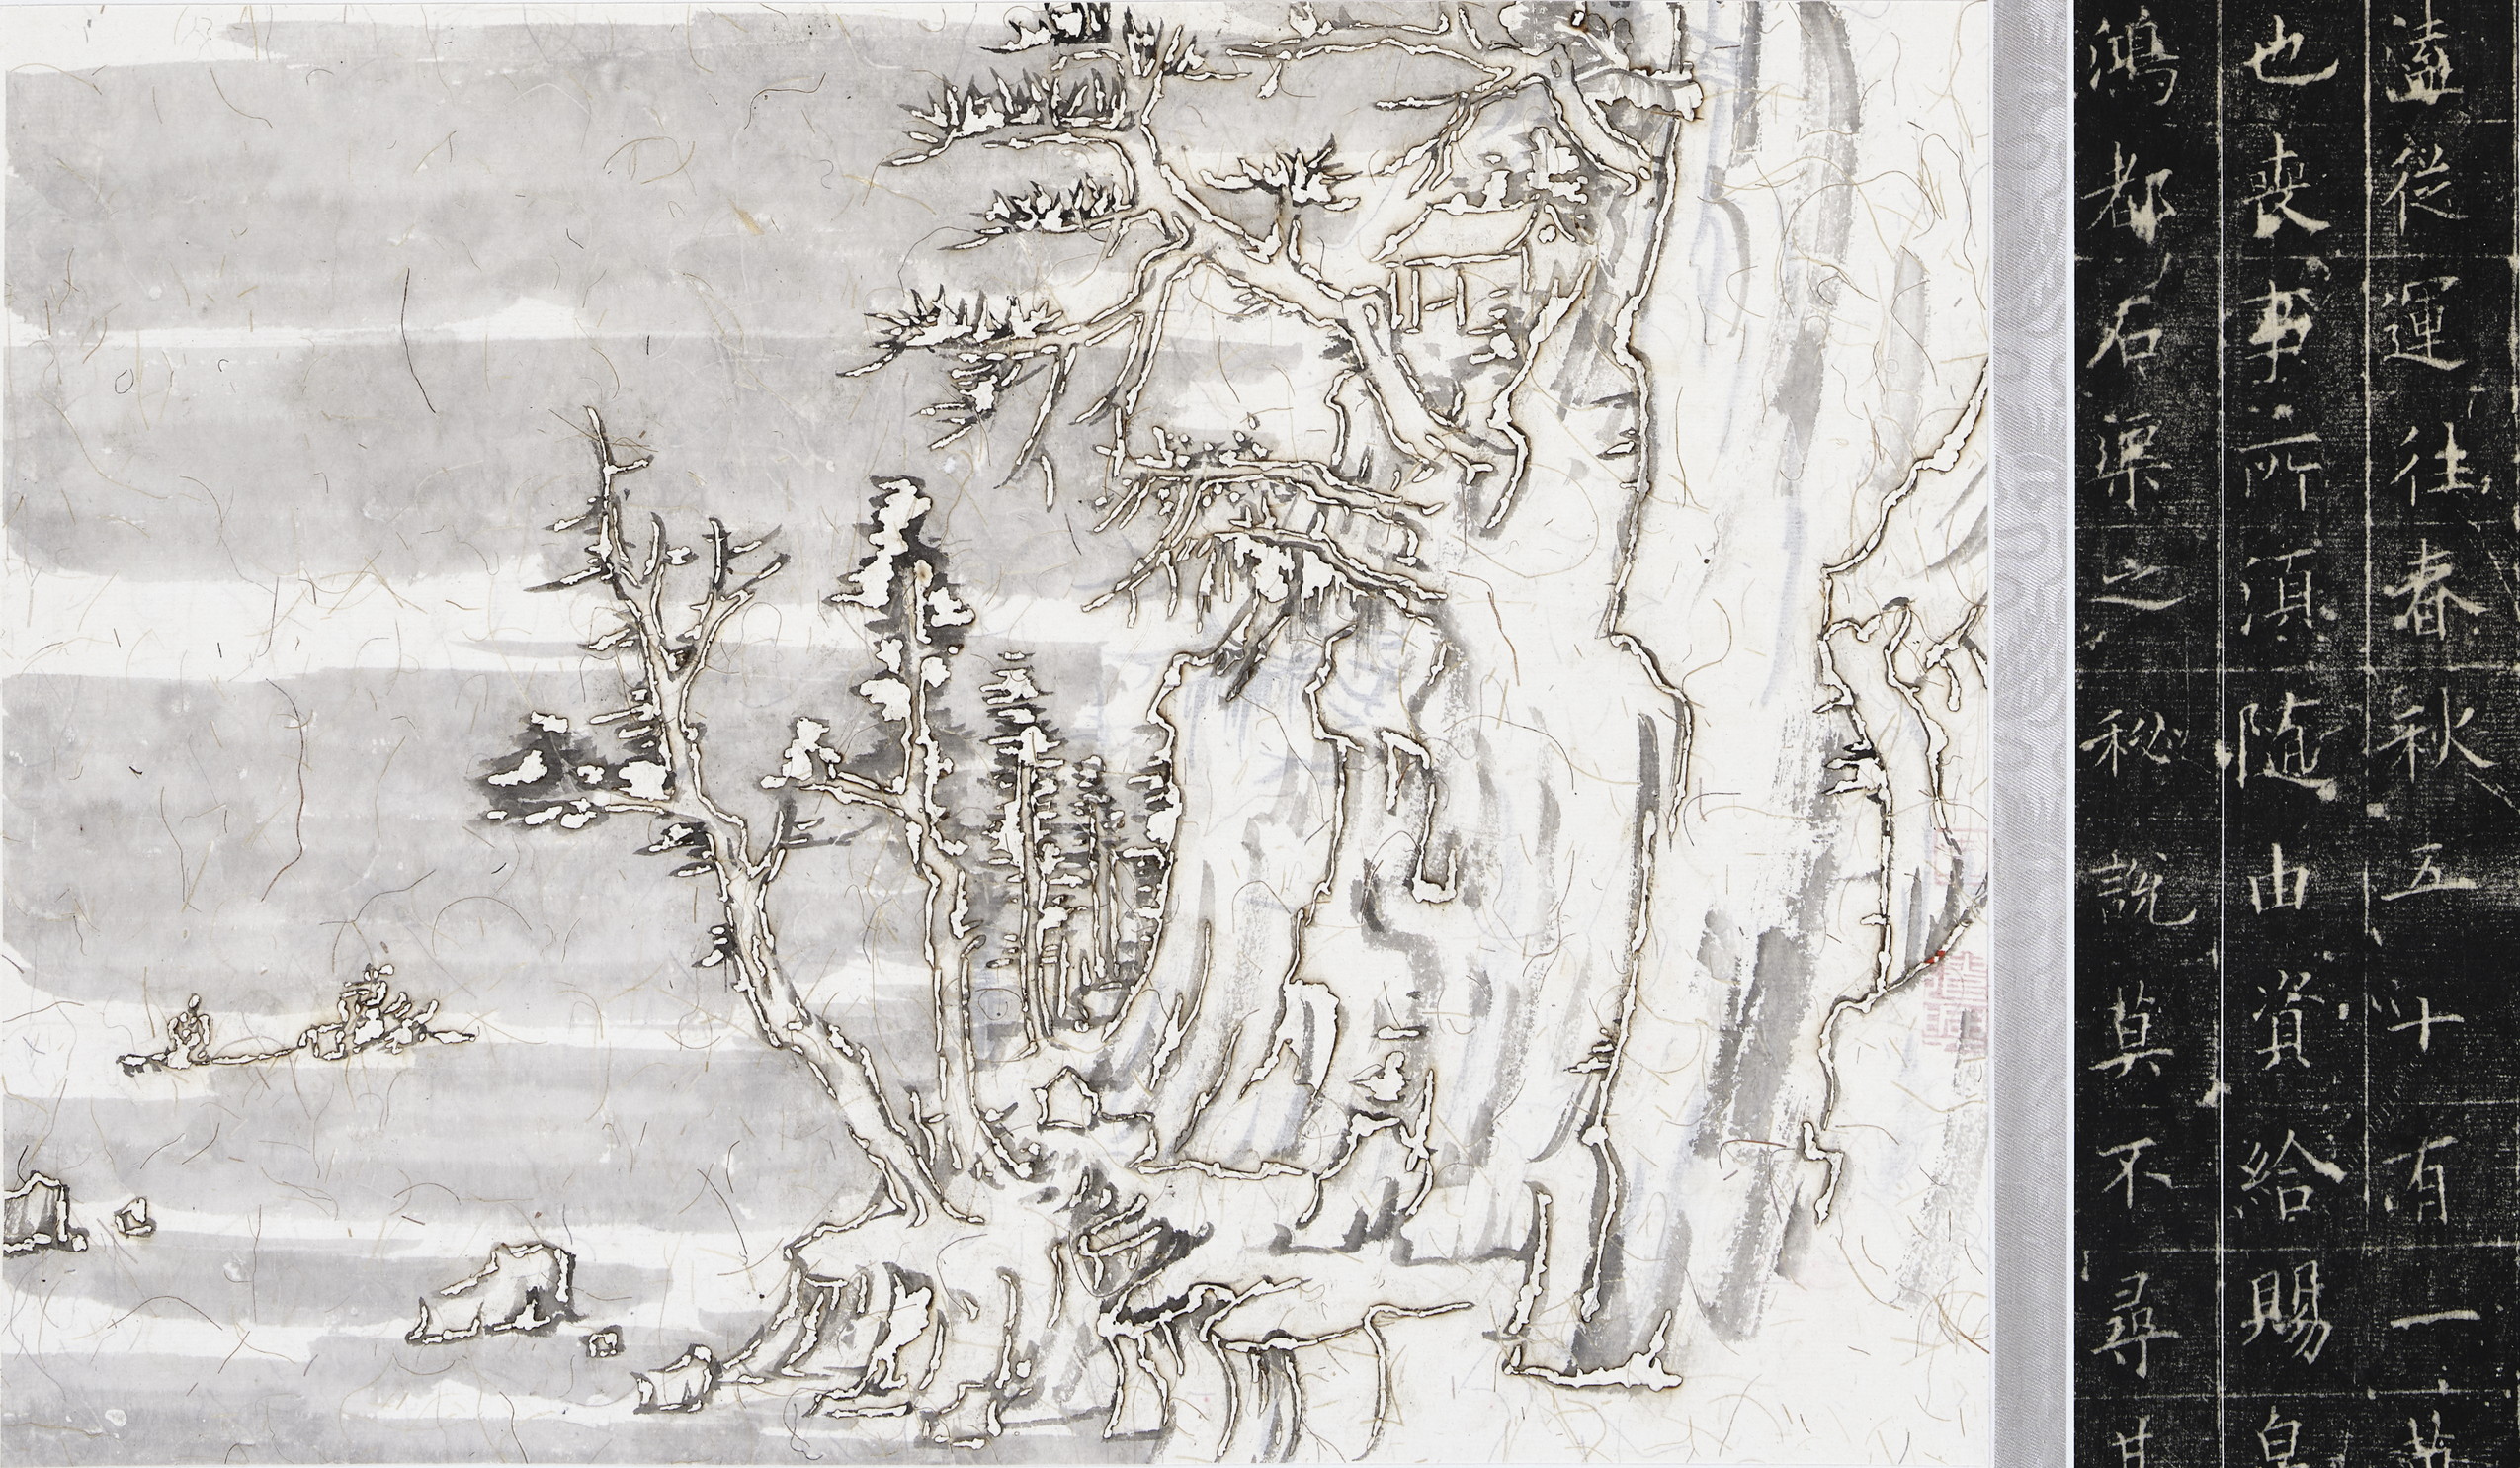 溘從運往春秋五十有一
也喪事所須隨由資給賜
鴻都石渠之秘說莫不尋其